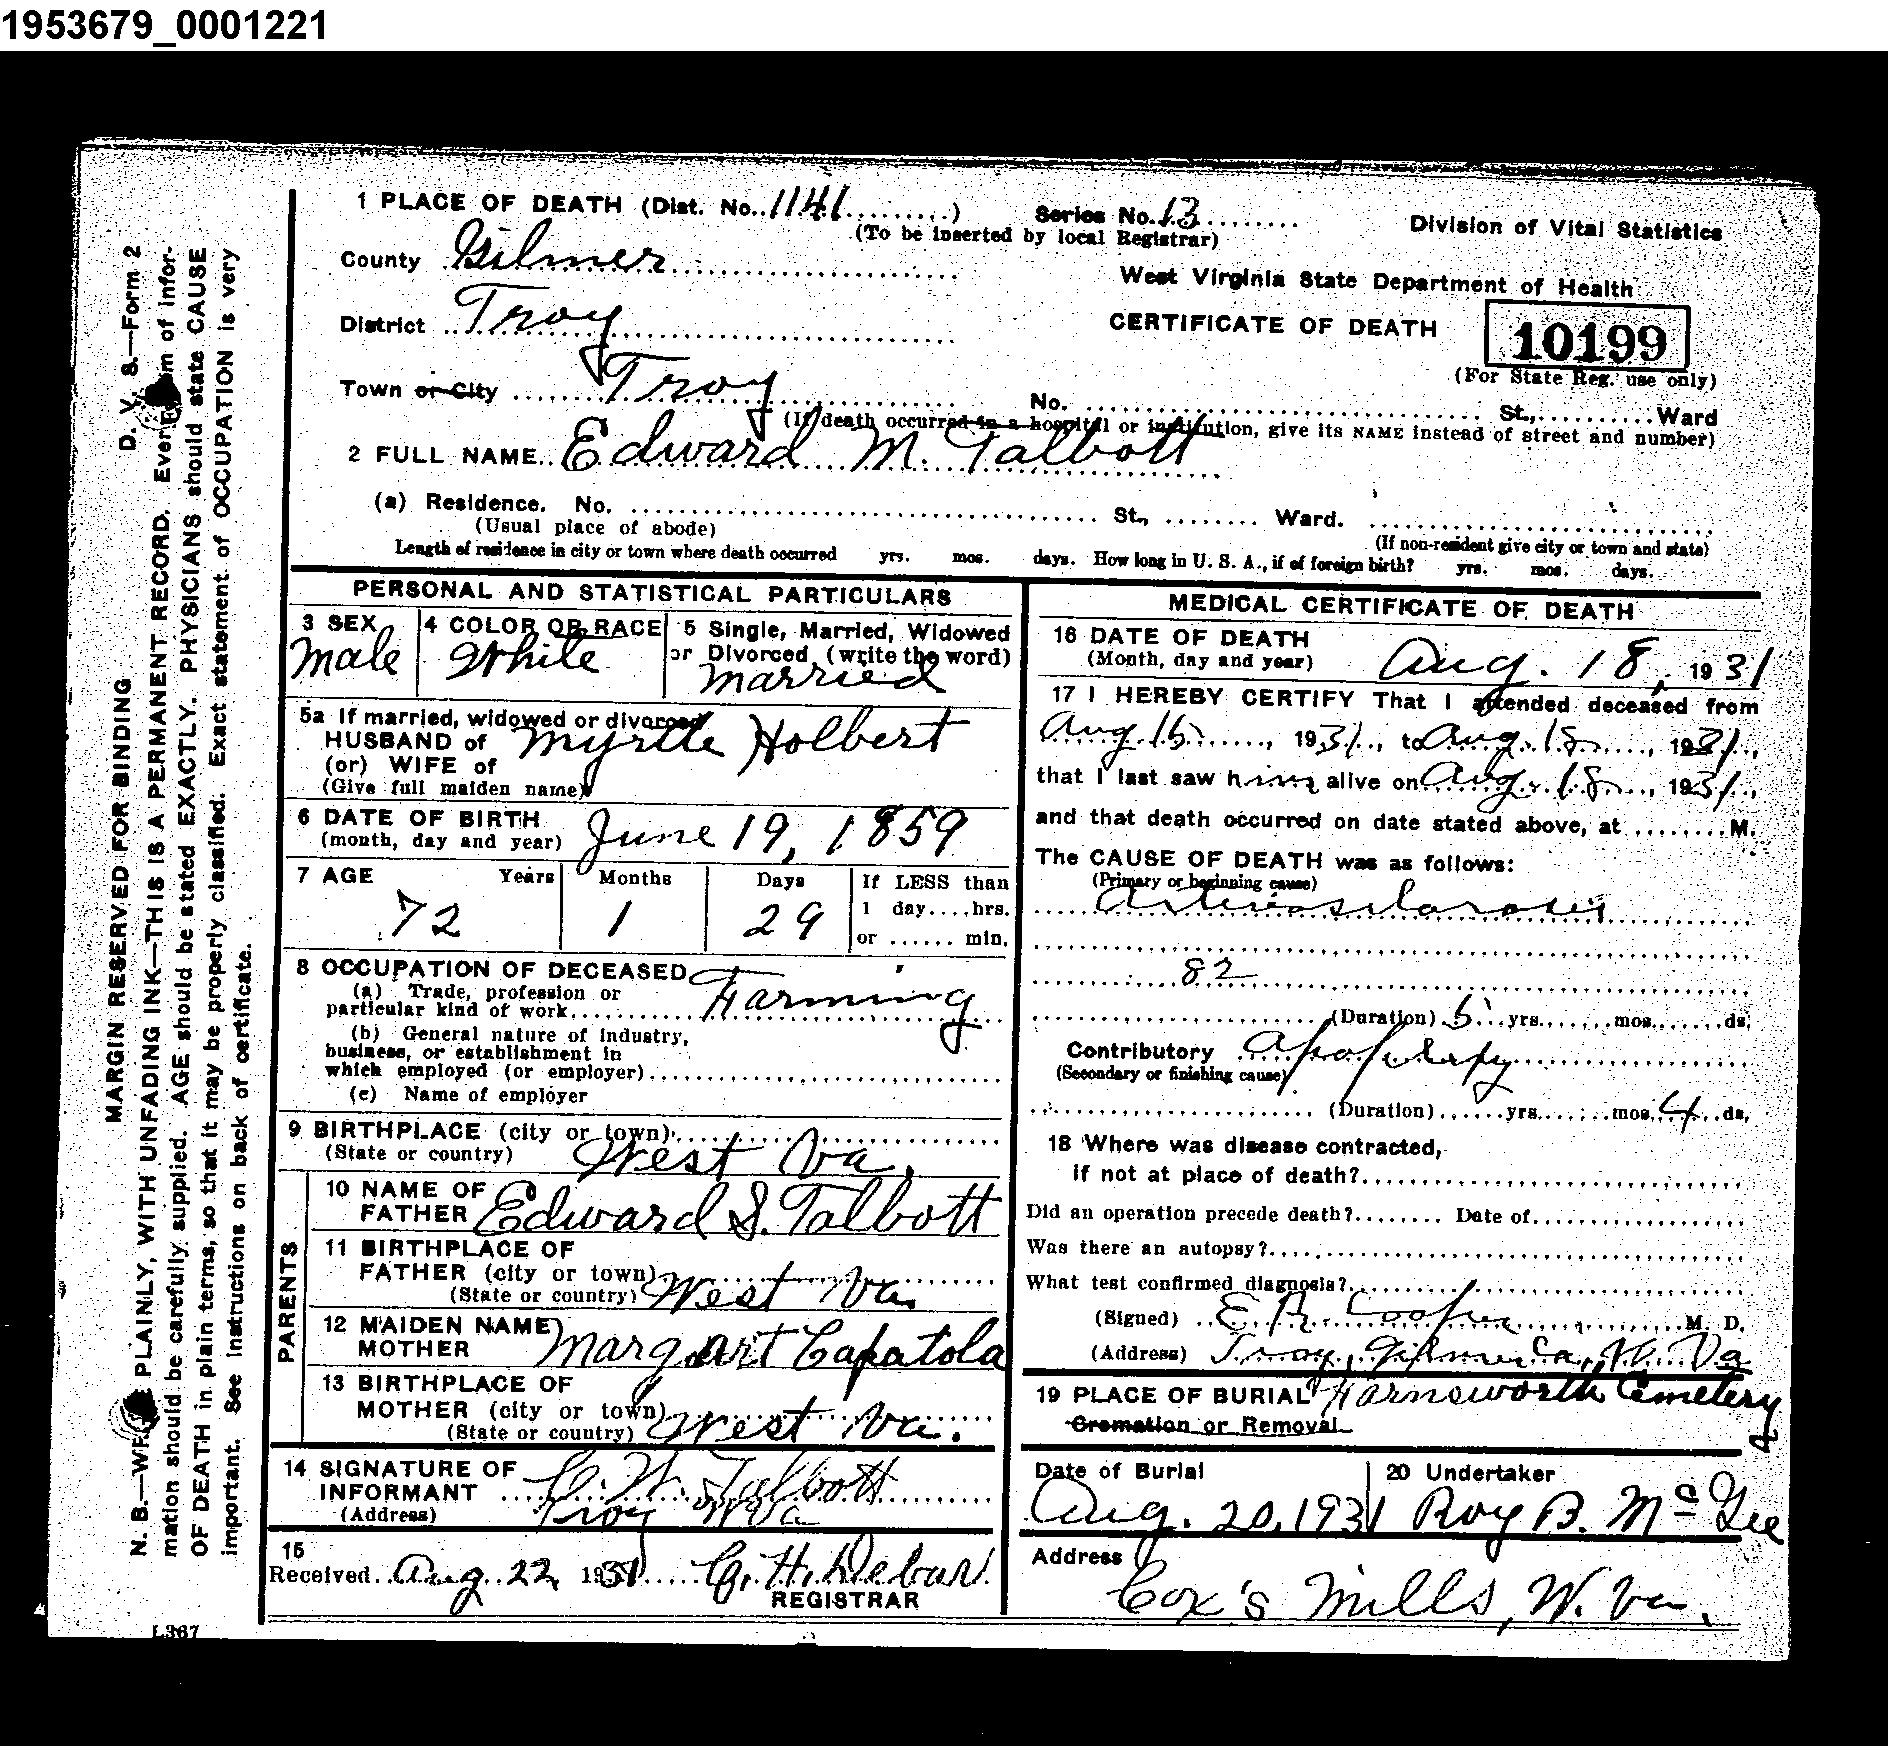 1953679_0001221
1 PLACE OF DEATH (Dist. No. 1141) Series No. 13
(To be inserted by local Registrar)
Division of Vital Statistics
County Gilmer
West Virginia State Department of Health
District Troy
CERTIFICATE OF DEATH
10199
(For State Reg. use only)
Town or City Troy
No. St., Ward
(If death occurred in a hospital or institution, give its NAME instead of street and number)
2 FULL NAME Edward M. Talbott
(a) Residence. No. St., Ward.
(Usual place of abode)
(If non-resident give city or town and state)
Length of residence in city or town where death occurred yrs. mos. days. How long in U. S. A., if of foreign birth? yrs. mos. days.
PERSONAL AND STATISTICAL PARTICULARS
3 SEX
Male
4 COLOR OR RACE
White
5 Single, Married, Widowed
or Divorced (write the word)
Married
5a If married, widowed or divorced
HUSBAND of Myrtle Holbert
(or) WIFE of
(Give full maiden name)
6 DATE OF BIRTH
(month, day and year) June 19, 1859
7 AGE Years Months Days If LESS than
1 day....hrs.
or ...... min.
72 1 29
8 OCCUPATION OF DECEASED
(a) Trade, profession or
particular kind of work Farming
(b) General nature of industry,
business, or establishment in
which employed (or employer)
(c) Name of employer
9 BIRTHPLACE (city or town)
(State or country) West Va.
PARENTS
10 NAME OF
FATHER Edward S. Talbott
11 BIRTHPLACE OF
FATHER (city or town)
(State or country) West Va.
12 MAIDEN NAME
MOTHER Margart Capatola
13 BIRTHPLACE OF
MOTHER (city or town)
(State or country) West Va.
14 SIGNATURE OF
INFORMANT C. W. Talbott
(Address) Troy W Va
15
Received Aug 22, 1931 C. H. Debar
REGISTRAR
MEDICAL CERTIFICATE OF DEATH
16 DATE OF DEATH
(Month, day and year) Aug. 18, 1931
17 I HEREBY CERTIFY That I attended deceased from
Aug 15, 1931, to Aug. 18, 1931,
that I last saw him alive on Aug. 18, 1931,
and that death occurred on date stated above, at ........M.
The CAUSE OF DEATH was as follows:
(Primary or beginning cause)
Arteriosclarosis
82
(Duration) 5 yrs. mos. ds.
Contributory Apoplexy
(Secondary or finishing cause)
(Duration) yrs. mos. 4 ds.
18 Where was disease contracted,
if not at place of death?
Did an operation precede death? Date of
Was there an autopsy?
What test confirmed diagnosis?
(Signed) Cooper M. D.
(Address) Troy, Gilmer Co, W. Va
19 PLACE OF BURIAL Farnsworth Cemetery
Cremation or Removal
Date of Burial
Aug. 20, 1931
20 Undertaker
Roy B. McGee
Address
Cox's Mills, W. Va.
D. V. S.—Form 2
MARGIN RESERVED FOR BINDING
N. B.—WRITE PLAINLY, WITH UNFADING INK—THIS IS A PERMANENT RECORD. Every item of infor-
mation should be carefully supplied. AGE should be stated EXACTLY. PHYSICIANS should state CAUSE
OF DEATH in plain terms, so that it may be properly classified. Exact statement of OCCUPATION is very
important. See instructions on back of certificate.
L367